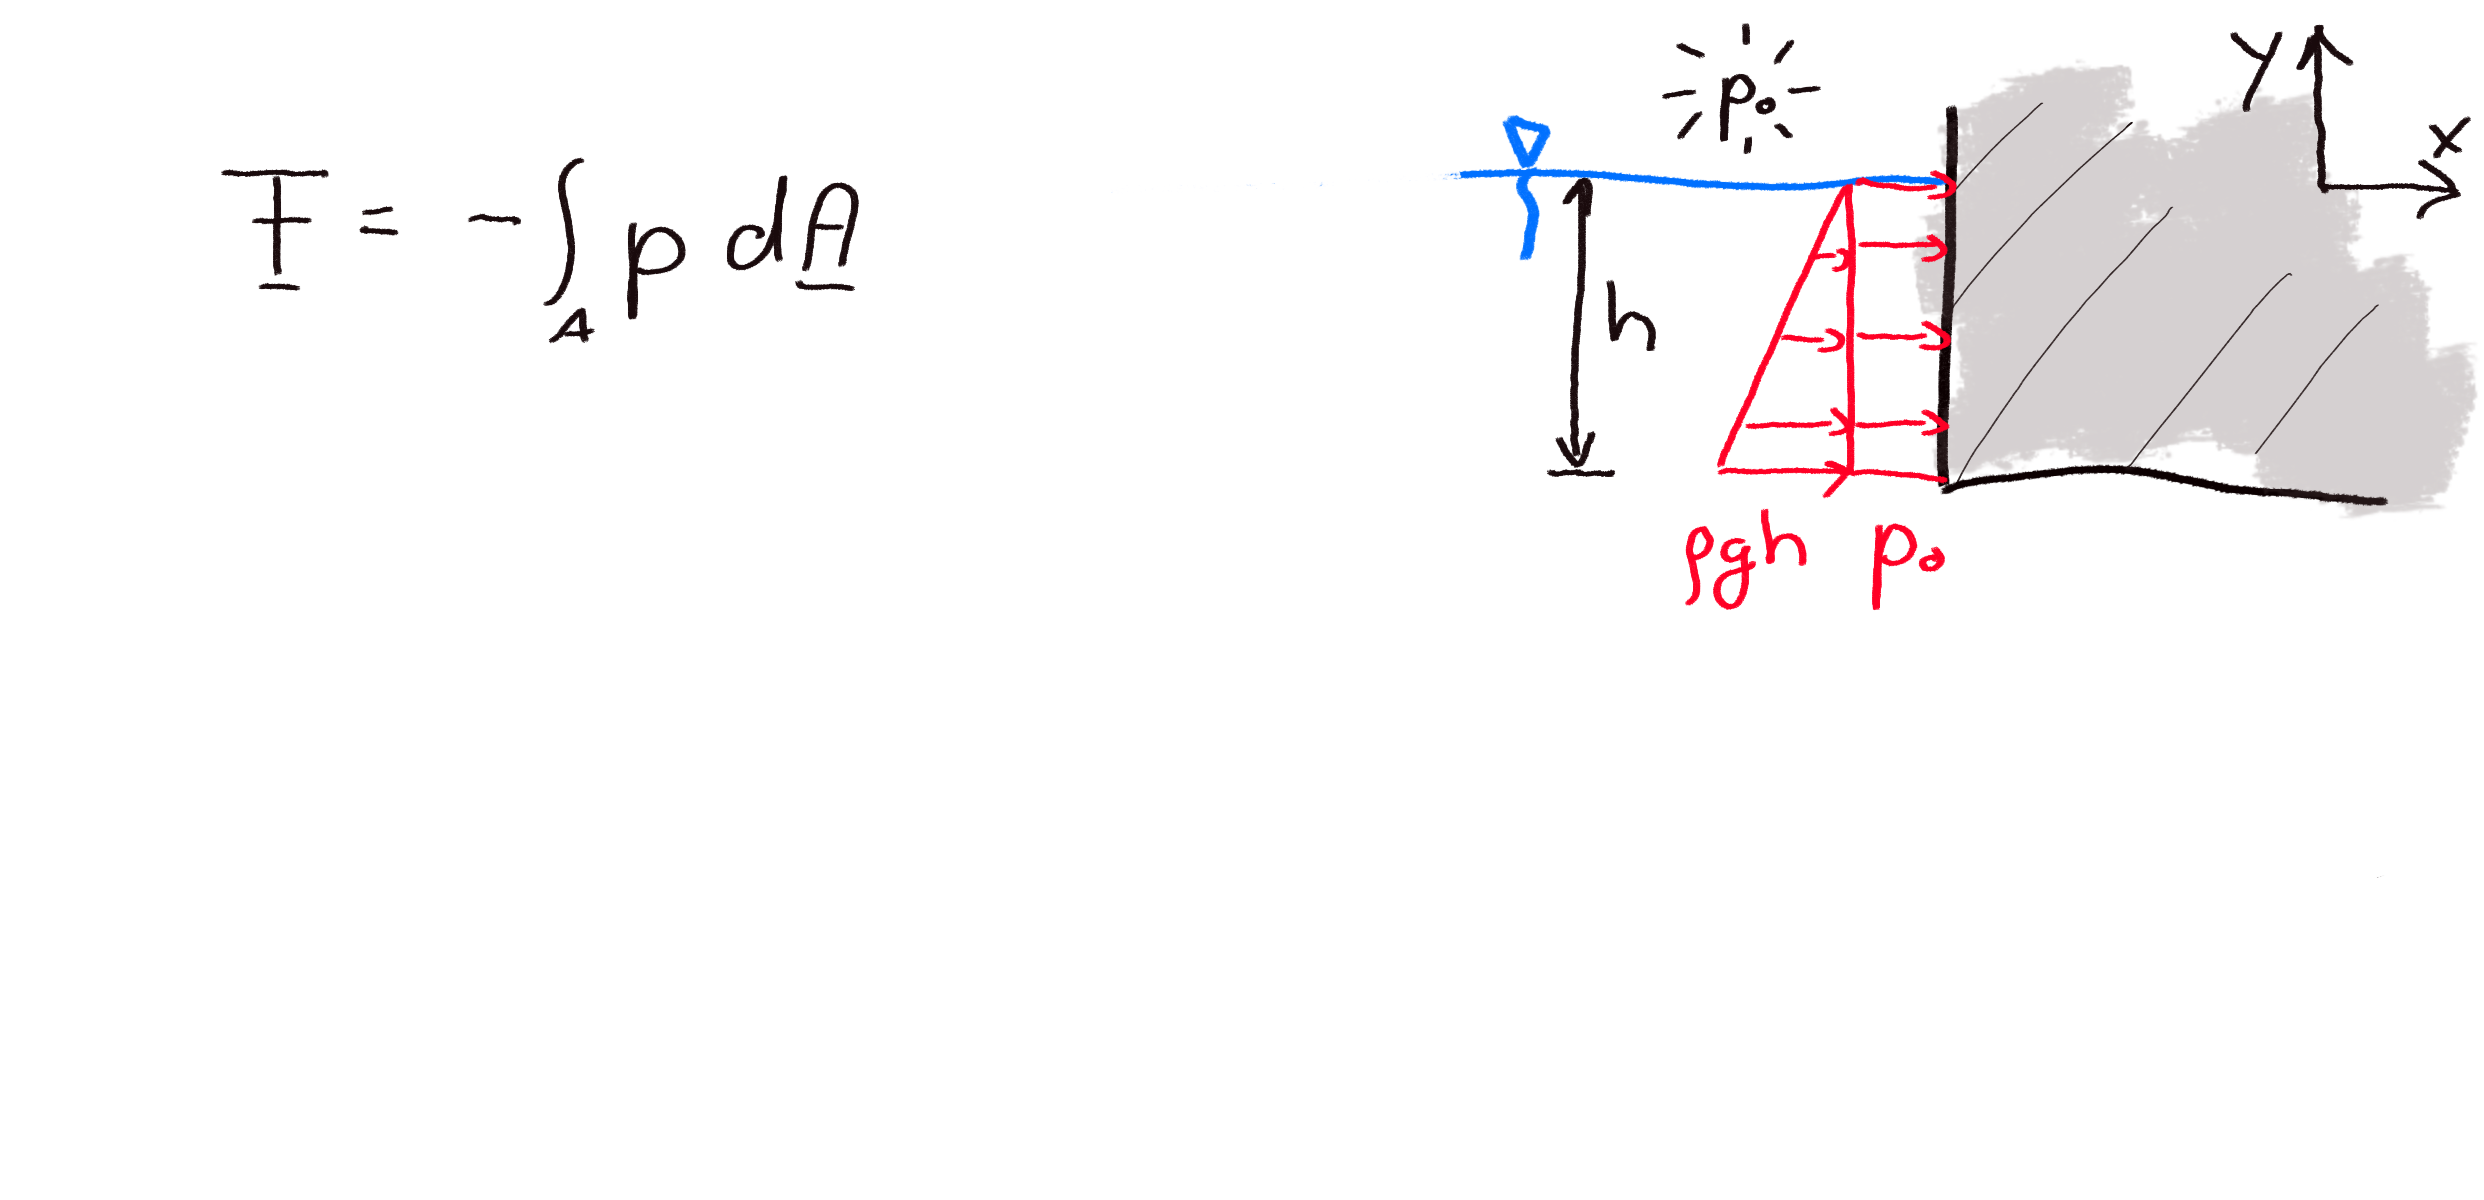 F = - ∫_A p dA
p₀
y
x
h
ρgh p₀